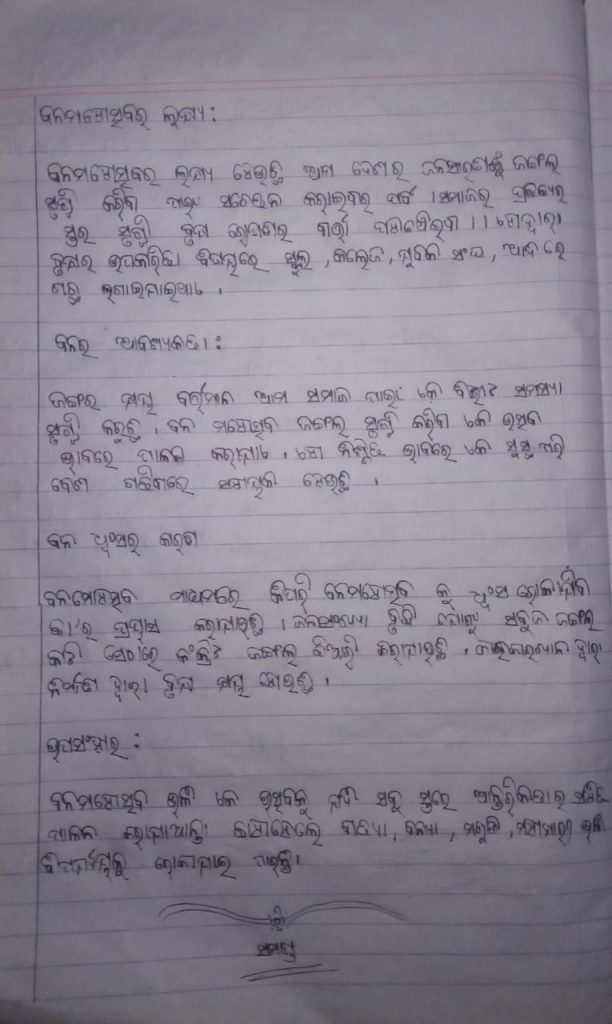 ବନମହୋତ୍ସବର ଲକ୍ଷ୍ୟ :
ବନମହୋତ୍ସବର ଲକ୍ଷ୍ୟ ହେଉଛି ଆମ ଦେଶର ଜନସାଧାରଣଙ୍କୁ ଜଙ୍ଗଲ
ସୃଷ୍ଟି କରିବା ପାଇଁ ସଚେତନ କରାଇବାର ପର୍ବ । ସମାଜର ପ୍ରତ୍ୟେକ
ସ୍ତର ବୃକ୍ଷ ରୋପଣର ବାର୍ତ୍ତା ।
ବୃକ୍ଷର ଉପକାରିତା ବିଷୟରେ ସ୍କୁଲ , କଲେଜ , ଯୁବକ ସଂଘ , ଆଦି ରେ
ବନର ଆବଶ୍ୟକତା :
ଜଙ୍ଗଲ କ୍ଷୟ ବର୍ତ୍ତମାନ ଆମ ସମାଜ ପାଇଁ ଏକ ବିରାଟ ସମସ୍ୟା
ସୃଷ୍ଟି କରୁଛି . ବନ ମହୋତ୍ସବ ଜଙ୍ଗଲ ସୃଷ୍ଟି କରିବା ଏକ ଉତ୍ସବ
ଭାବରେ ପାଳନ କରାଯାଏ . ଏହା ନିଶ୍ଚିତ ଭାବରେ ଏକ ସୁସ୍ଥ
ଦେଶ ଗଢିବାରେ ସହାୟକ ହେଉଛି .
ବନ ଧ୍ୱଂସର କାରଣ
ବନମହୋତ୍ସବ ମାଧ୍ୟମରେ କିପରି ବନମହୋତ୍ସବ କୁ ଧ୍ୱଂସ ରୋକାଯିବ
ତା'ର ପ୍ରୟାସ କରାଯାଉଛି . ଜନସଂଖ୍ୟା ବୃଦ୍ଧି ଯୋଗୁଁ ସବୁଜ ଜଙ୍ଗଲ
କାଟି ସେଠାରେ କଂକ୍ରିଟ ଜଙ୍ଗଲ ତିଆରି କରାଯାଉଛି . କଳକାରଖାନା ଦ୍ୱାରା
ଦ୍ୱାରା ବୃକ୍ଷ କ୍ଷୟ ହେଉଛି .
ଉପସଂହାର :
ବନମହୋତ୍ସବ ଭଳି ଏକ ଉତ୍ସବକୁ ଯଦି ସବୁ ସ୍ତରେ ଆନ୍ତରିକତାର ସହିତ
ପାଳନ କରାଯାଆନ୍ତା ତାହେଲେ ବାତ୍ୟା , ବନ୍ୟା , ମରୁଡି , ମହାମାରୀ ଭଳି
ବିପର୍ଯ୍ୟୟକୁ ରୋକାଯାଇ ପାରନ୍ତା ।
ସମାପ୍ତ